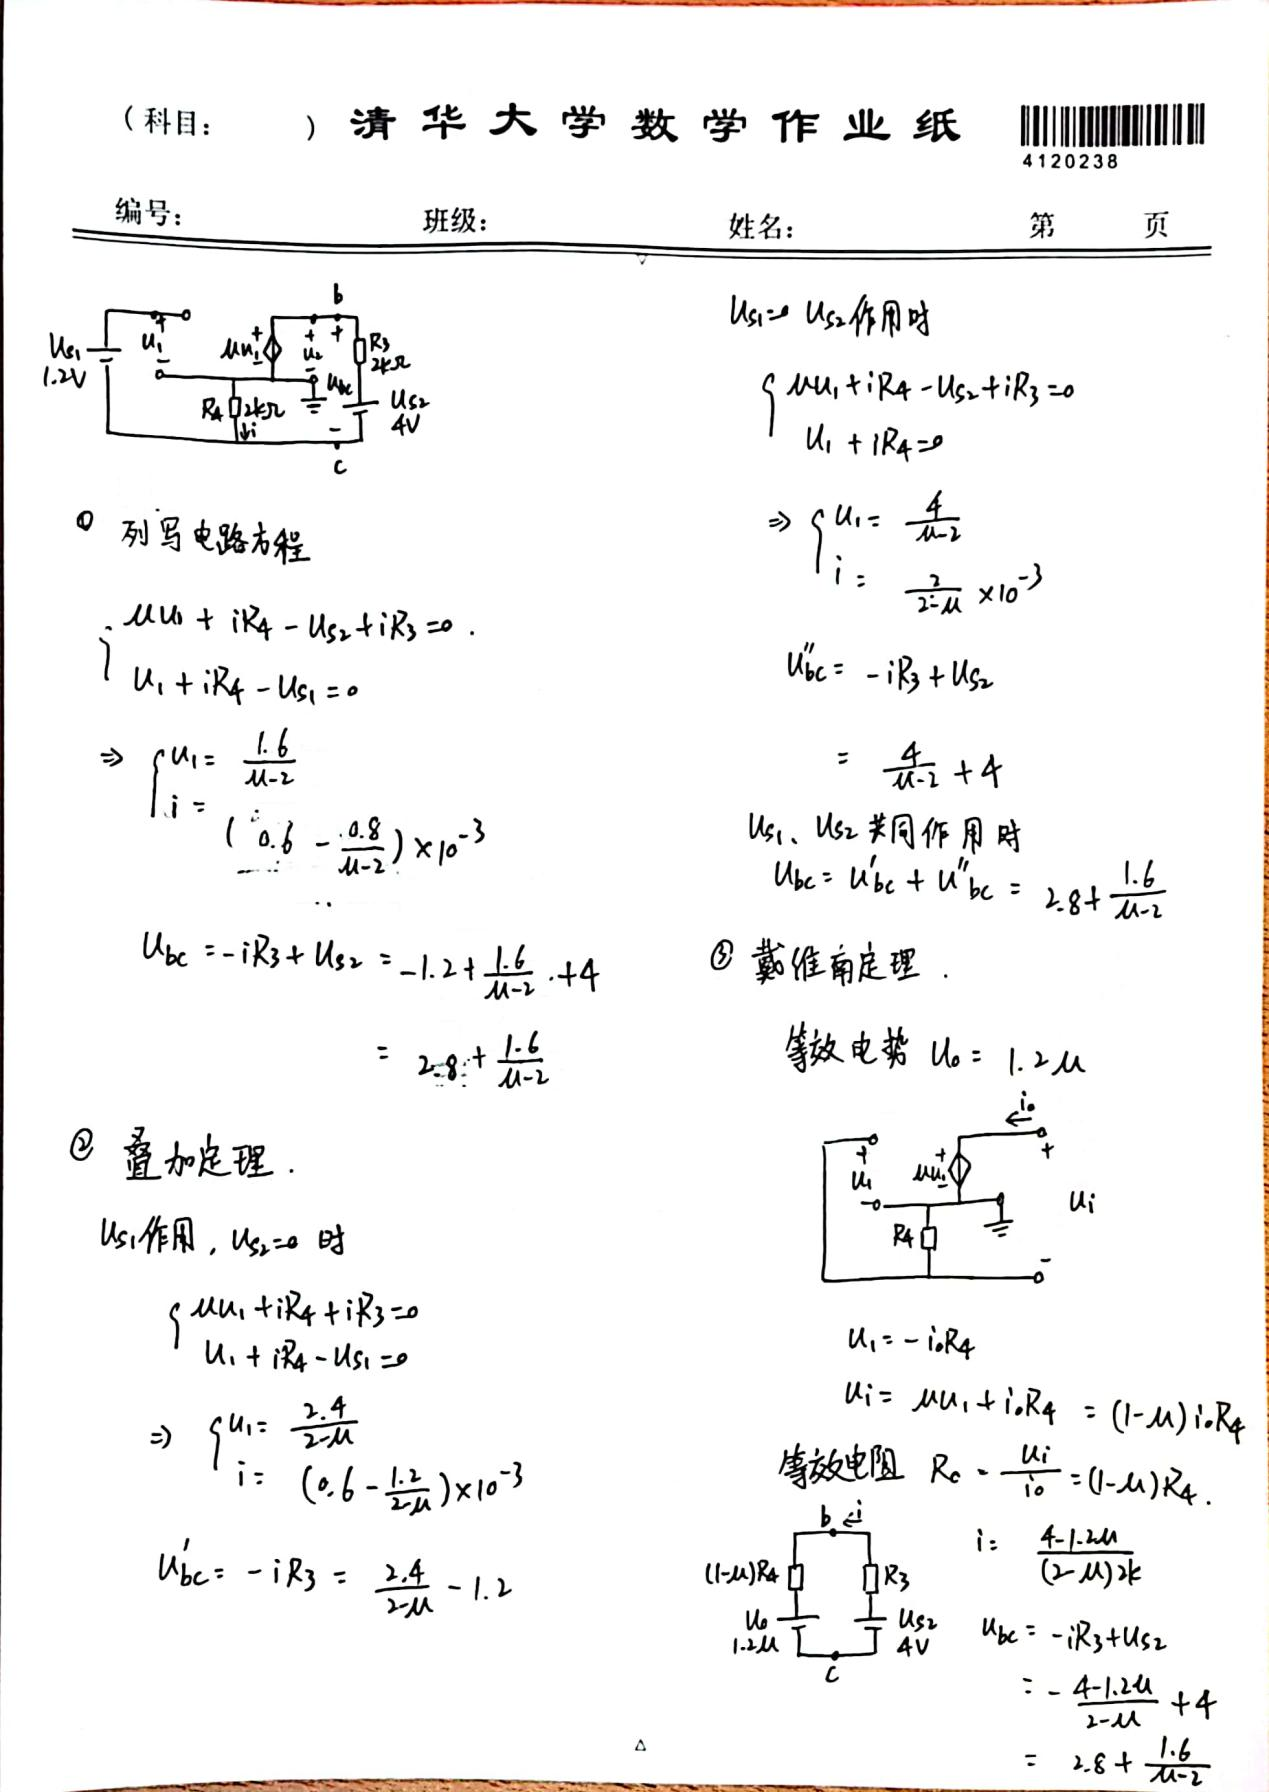 （科目：　　）清华大学数学作业纸
4120238
编号：　　班级：　　姓名：　　第　　页
b
Us1
1.2V
+
u1
-
μu1
+
-
+
u2
-
+
ubc
-
R3
2kΩ
R4
2kΩ
↓i
Us2
4V
c
① 列写电路方程
{ μu1 + iR4 - Us2 + iR3 = 0 .
u1 + iR4 - Us1 = 0
⇒ { u1 = 1.6/(μ-2)
i = (0.6 - 0.8/(μ-2)) ×10^-3
Ubc = -iR3 + Us2 = -1.2 + 1.6/(μ-2) + 4
= 2.8 + 1.6/(μ-2)
② 叠加定理 .
Us1作用，Us2=0 时
{ μu1 + iR4 + iR3 = 0
u1 + iR4 - Us1 = 0
⇒ { u1 = 2.4/(2-μ)
i = (0.6 - 1.2/(2-μ)) ×10^-3
U'bc = -iR3 = 2.4/(2-μ) - 1.2
Us1=0 Us2作用时
{ μu1 + iR4 - Us2 + iR3 = 0
u1 + iR4 = 0
⇒ { u1 = 4/(μ-2)
i = 2/(2-μ) ×10^-3
U''bc = -iR3 + Us2
= 4/(μ-2) + 4
Us1、Us2共同作用时
Ubc = U'bc + U''bc = 2.8 + 1.6/(μ-2)
③ 戴维南定理 .
等效电势 U0 = 1.2μ
i0
+
u1
-
μu1
+
-
R4
+
ui
-
u1 = -i0R4
ui = μu1 + i0R4 = (1-μ)i0R4
等效电阻 R0 = ui/i0 = (1-μ)R4 .
b ←i
(1-μ)R4
R3
U0
1.2μ
Us2
4V
c
i = (4-1.2μ)/((2-μ)2k)
Ubc = -iR3 + Us2
= - (4-1.2μ)/(2-μ) + 4
= 2.8 + 1.6/(μ-2)